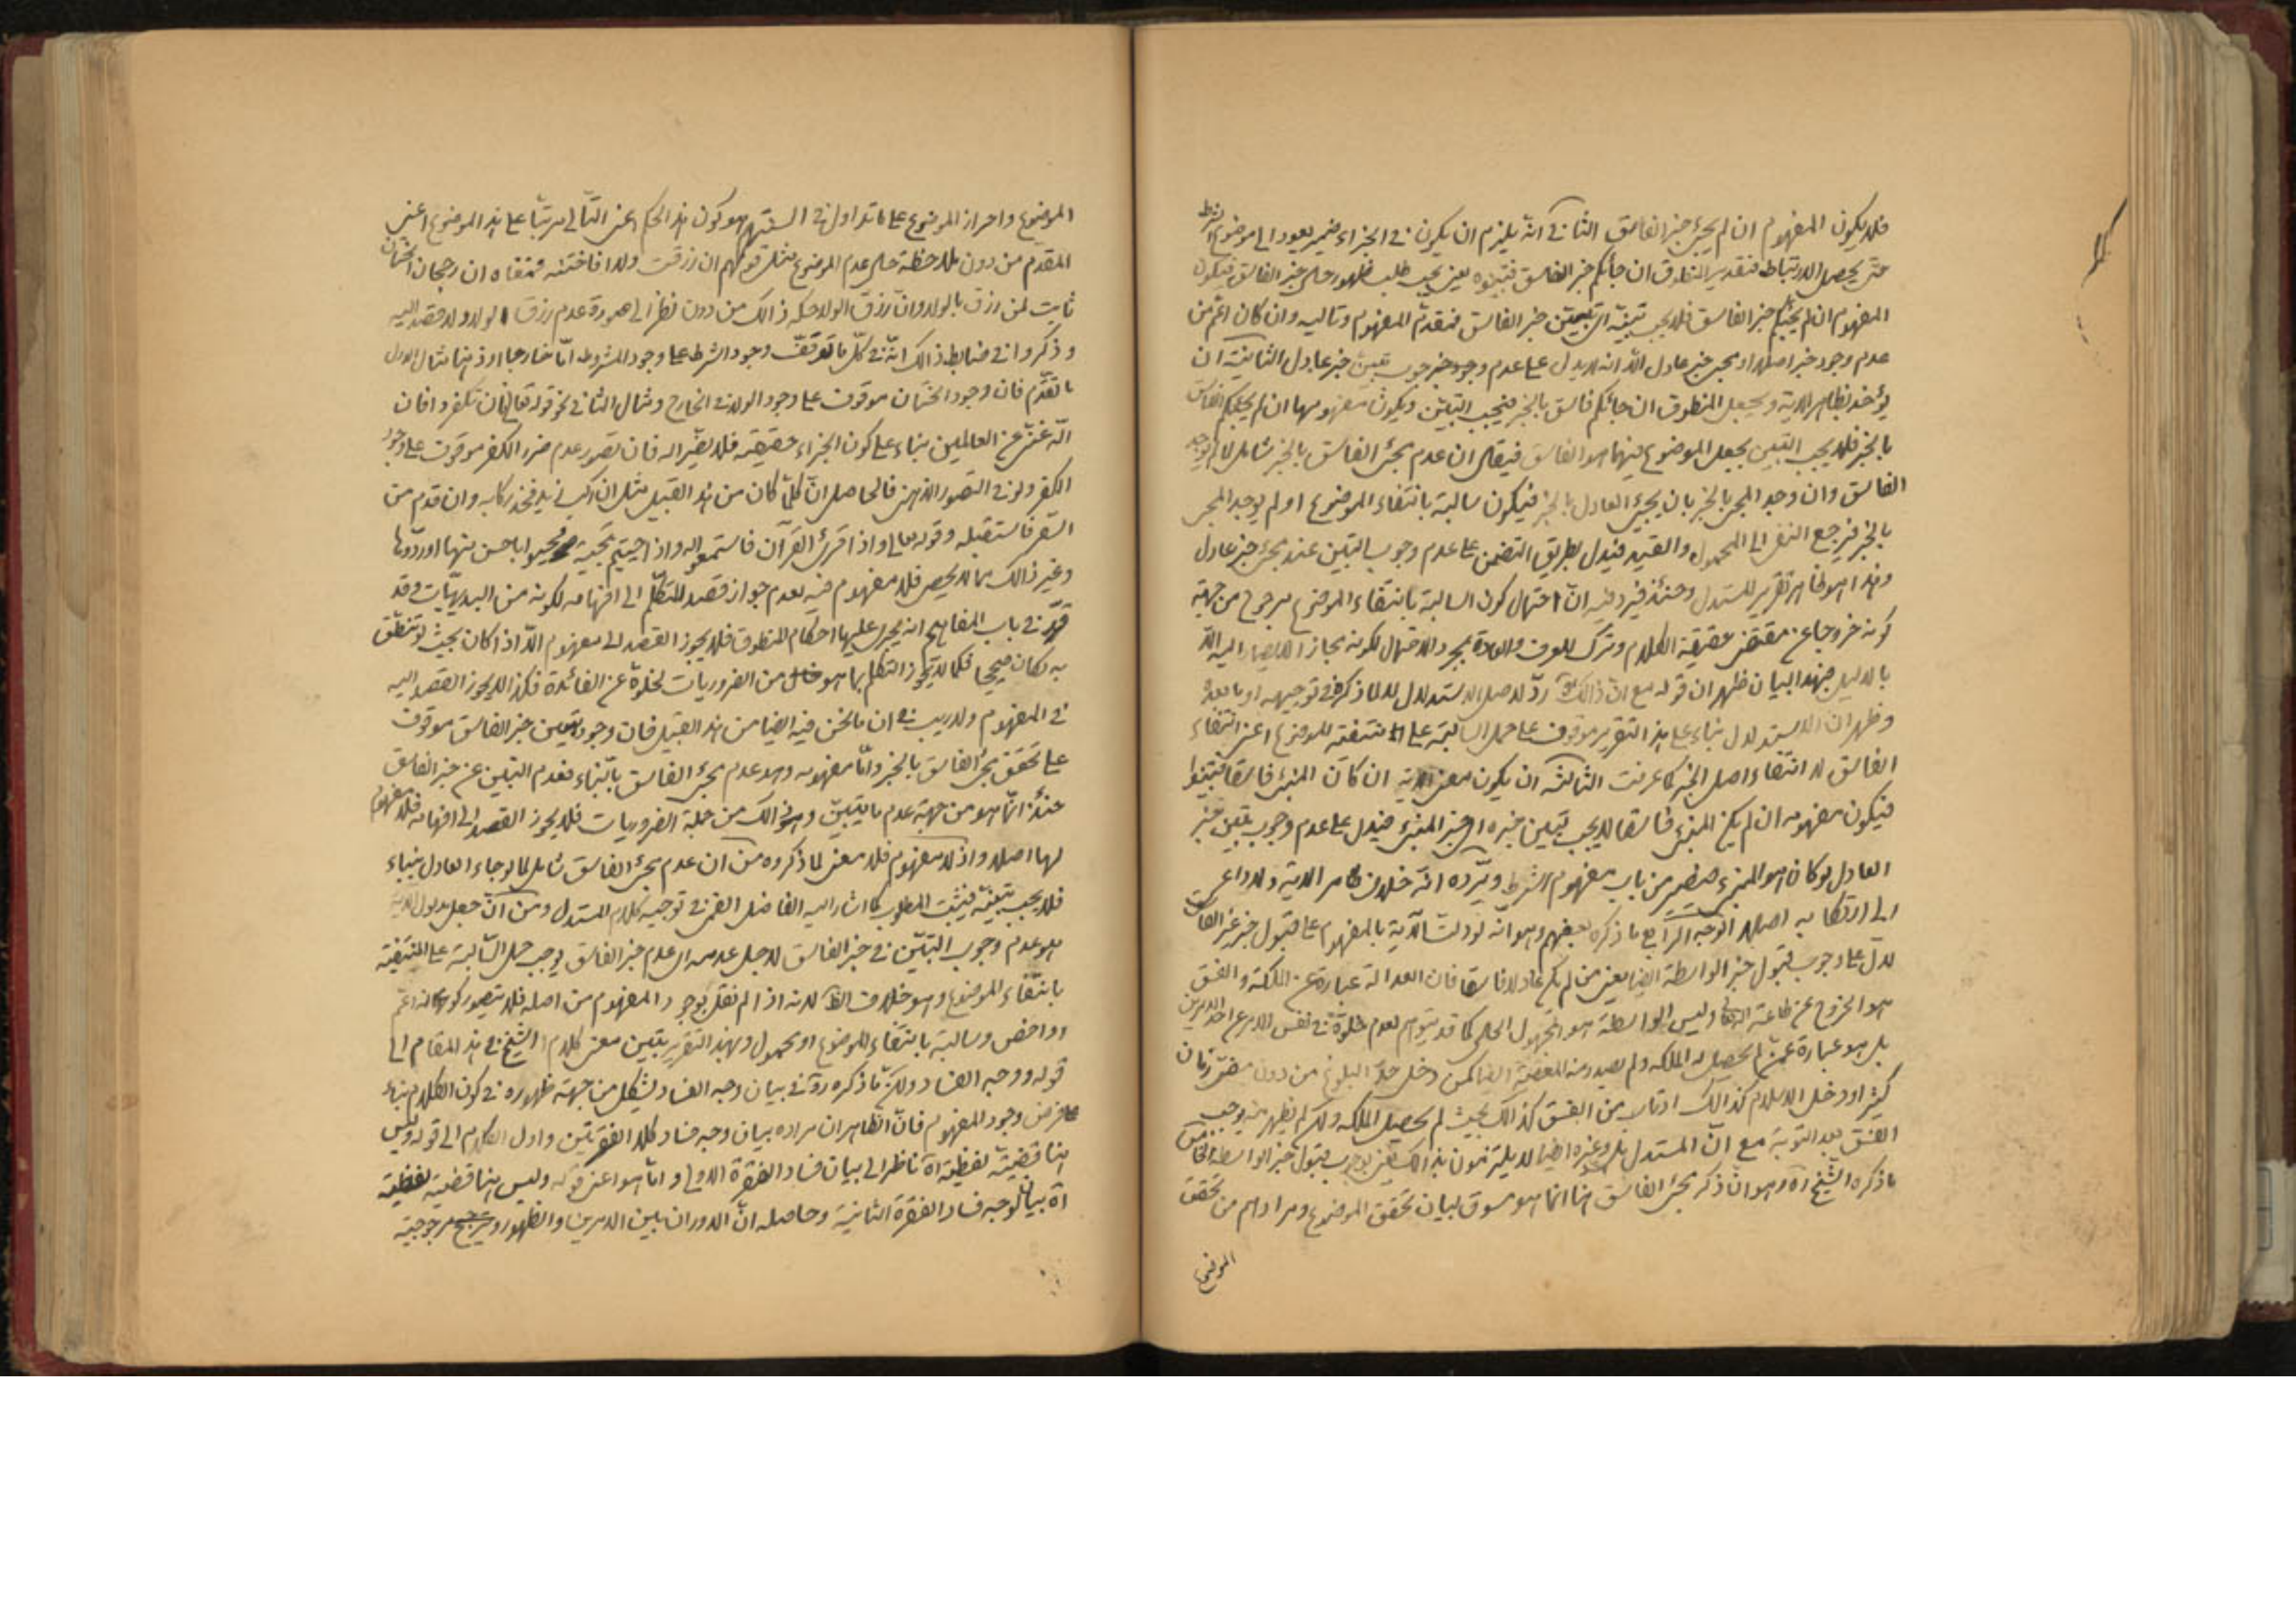 فلا يكون المفهوم ان لم يجئ خبر الفاسق الثاني انه يلزم ان يكون في الجزاء ضمير يعود الى موضوع الشرط
حتى يحصل الارتباط فتقدير المنطوق ان جائكم خبر الفاسق فتبينوه يعني يجب طلب ظهور حال خبر الفاسق فيكون
المفهوم ان لم يجئكم خبر الفاسق فلا يجب تبينه اى تبين خبر الفاسق فمقدم المفهوم وتاليه وان كان اعم من
عدم وجود خبر اصلا او مجئ خبر عادل الا انه لا يدل على عدم وجوب تبين خبر عادل الثانية ان
يؤخذ بظاهر الاية ويجعل المنطوق ان جائكم فاسق بالخبر فيجب التبين ويكون مفهومها ان لم يجئكم الفاسق
بالخبر فلا يجب التبين بجعل الموضوع فيهما هو الفاسق فيقال ان عدم مجئ الفاسق بالخبر شامل لما لم يوجد
الفاسق وان وجد المجئ بالخبر بان يجئ العادل بالخبر فيكون سالبة بانتفاء الموضوع او لم يوجد المجئ
بالخبر فيرجع النفى الى المحمول والقيد فيدل بطريق التضمن على عدم وجوب التبين عند مجئ خبر عادل
وهذا هو ظاهر تقرير المستدل وحينئذ فيرد فيه ان احتمال كون السالبة بانتفاء الموضوع مرجوح من جهة
كونه خروجا عن مقتضى حقيقة الكلام وترك للعرف والعادة بمجرد الاحتمال لكونه مجازا لا يصار اليه الا
بالدليل فبهذا البيان ظهر ان قوله مع ان ذالك رد لاصل الاستدلال لا لما ذكره في توجيهه او ما بعده
وظهر ان الاستدلال بناء على هذا التقرير موقوف على حمل السالبة على المنتفية للموضوع اعنى انتفاء
الفاسق لا انتفاء اصل الخبر كما عرفت الثالثة ان يكون معنى الاية ان كان المنبئ فاسقا فتبينوا
فيكون مفهومه ان لم يكن المنبئ فاسقا لا يجب تبين خبره اى خبر المنبئ فيدل على عدم وجوب تبين خبر
العادل لو كان هو المنبئ فيصير من باب مفهوم الشرط ويرده انه خلاف ظاهر الاية ولا داعى
الى ارتكابه اصلا الوجه الرابع ما ذكره بعضهم وهو انه لو دلت الآية بالمفهوم على قبول خبر غير الفاسق
لدل على وجوب قبول خبر الواسطة ايضا يعنى من لم يكن عادلا فاسقا فان العدالة عبارة عن الملكة والفسق
هو الخروج عن طاعة الله تعالى وليس الواسطة هو المجهول الحال كما قد يتوهم لعدم خلوة في نفس الامر عن احد الامرين
بل هو عبارة عمن لم يحصل له الملكه ولم يصدر منه المعصية ايضا كمن دخل حد البلوغ من دون مضى زمان
كثير او دخل الاسلام كذالك او تاب من الفسق كذالك بحيث لم يحصل الملكه ولم يظهر منه موجب
الفسق بعد التوبة مع ان المستدل بل وغيره ايضا لا يلتزمون بذالك يعنى بوجوب قبول خبر الواسطة الخامس
ما ذكره الشيخ اه وهو ان ذكر مجئ الفاسق هنا انما هو مسوق لبيان تحقق الموضوع ومرادهم من تحقق
الموضوع
الموضوع واحراز الموضوع على ما تداول في السنتهم هو كون هذا الحكم اعنى التالي مرتبا على هذا الموضوع اعنى
المقدم من دون ملاحظة حال عدم الموضوع مثل قولهم ان رزقت ولدا فاختنه فمعناه ان رجحان الختان
ثابت لمن رزق بالولد وان رزق الولد حكمه ذالك من دون نظر الى صورة عدم رزق الولد ولا قصد اليه
وذكروا في ضابط ذالك انه في كل ما توقف وجود الشرط على وجود المشروط اما خارجا او ذهنا مثال الاول
ما تقدم فان وجود الختان موقوف على وجود الولد في الخارج ومثال الثاني نحو قوله تعالى فان تكفروا فان
الله غنى عن العالمين بناء على كون الجزاء حقيقة فلا يضر الله فان تصور عدم ضرر الكفر موقوف على وجود
الكفر ولو في التصور الذهنى فالحاصل ان كلما كان من هذا القبيل مثل ان ركب زيد فخذ ركابه وان قدم من
السفر فاستقبله وقوله تعالى واذا قرئ القرآن فاستمعوا له واذا حييتم بتحية فحيوا باحسن منها او ردوها
وغير ذالك مما لا يحصى فلا مفهوم فيه لعدم جواز قصد المتكلم الى افهامه لكونه من البديهيات وقد
قرر في باب المفاهيم انه يجرى عليها احكام المنطوق فلا يجوز القصد الى مفهوم الا اذا كان بحيث لو تنطق
به لكان صحيحا فكما لا يجوز التكلم بما هو من الضروريات لخلوه عن الفائدة فكذا لا يجوز القصد اليه
في المفهوم ولا ريب في ان ما نحن فيه ايضا من هذا القبيل فان وجود تبين خبر الفاسق موقوف
على تحقق مجئ الفاسق بالخبر واما مفهومه وهو عدم مجئ الفاسق بالنباء فعدم التبين عن خبر الفاسق
حينئذ انما هو من جهة عدم ما يتبين وهو ذالك من جملة الضروريات فلا يجوز القصد الى افهامه فلا مفهوم
لها اصلا واذ لا مفهوم فلا معنى لما ذكروه من ان عدم مجئ الفاسق شامل لما لو جاء العادل بنباء
فلا يجب تبينه فيثبت المطلوب كما اشار اليه الفاضل القمى في توجيه كلام المستدل ومن ان جعل مدلول الاية
هو عدم وجوب التبين في خبر الفاسق لاجل عدمه اى عدم خبر الفاسق يوجب حمل السالبة على المنتفية
بانتفاء الموضوع وهو خلاف الظ لانه اذا لم نقل بوجود المفهوم من اصله فلا يتصور كونه اعم
او اخص وسالبة بانتفاء الموضوع او محمول وبهذا التقرير يتبين معنى كلام الشيخ في هذا المقام الى
قوله ووجه الفساد ولكن ما ذكره ره في بيان وجه الفساد يشكل من جهة ظهوره في كون الكلام بناء
على فرض وجود المفهوم فان الظاهر ان مراده بيان وجه فساد كلا الفقرتين واول الكلام الى قوله وليس
هنا قضية لفظية اه ناظر الى بيان فساد الفقرة الاولى واما هو اعنى قوله وليس هنا قضية لفظية
اه بيان لوجه فساد الفقرة الثانية وحاصله ان الدوران بين الامرين والظهور مرجوحية